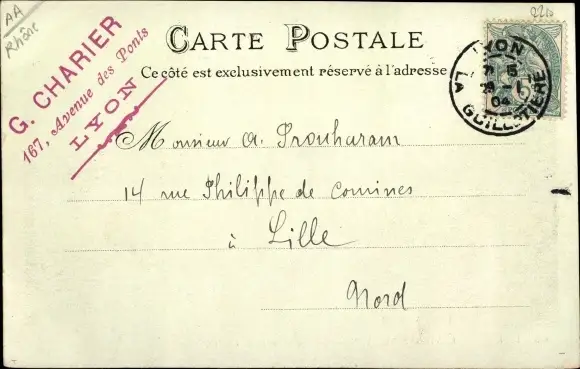 AA
Rhône
2210
G. CHARIER
167, Avenue des Ponts
LYON
CARTE POSTALE
Ce côté est exclusivement réservé à l'adresse
LYON
04
LA GUILLOTIÈRE
5
Monsieur A. Prouharam
14 rue Philippe de Comines
à Lille
Nord